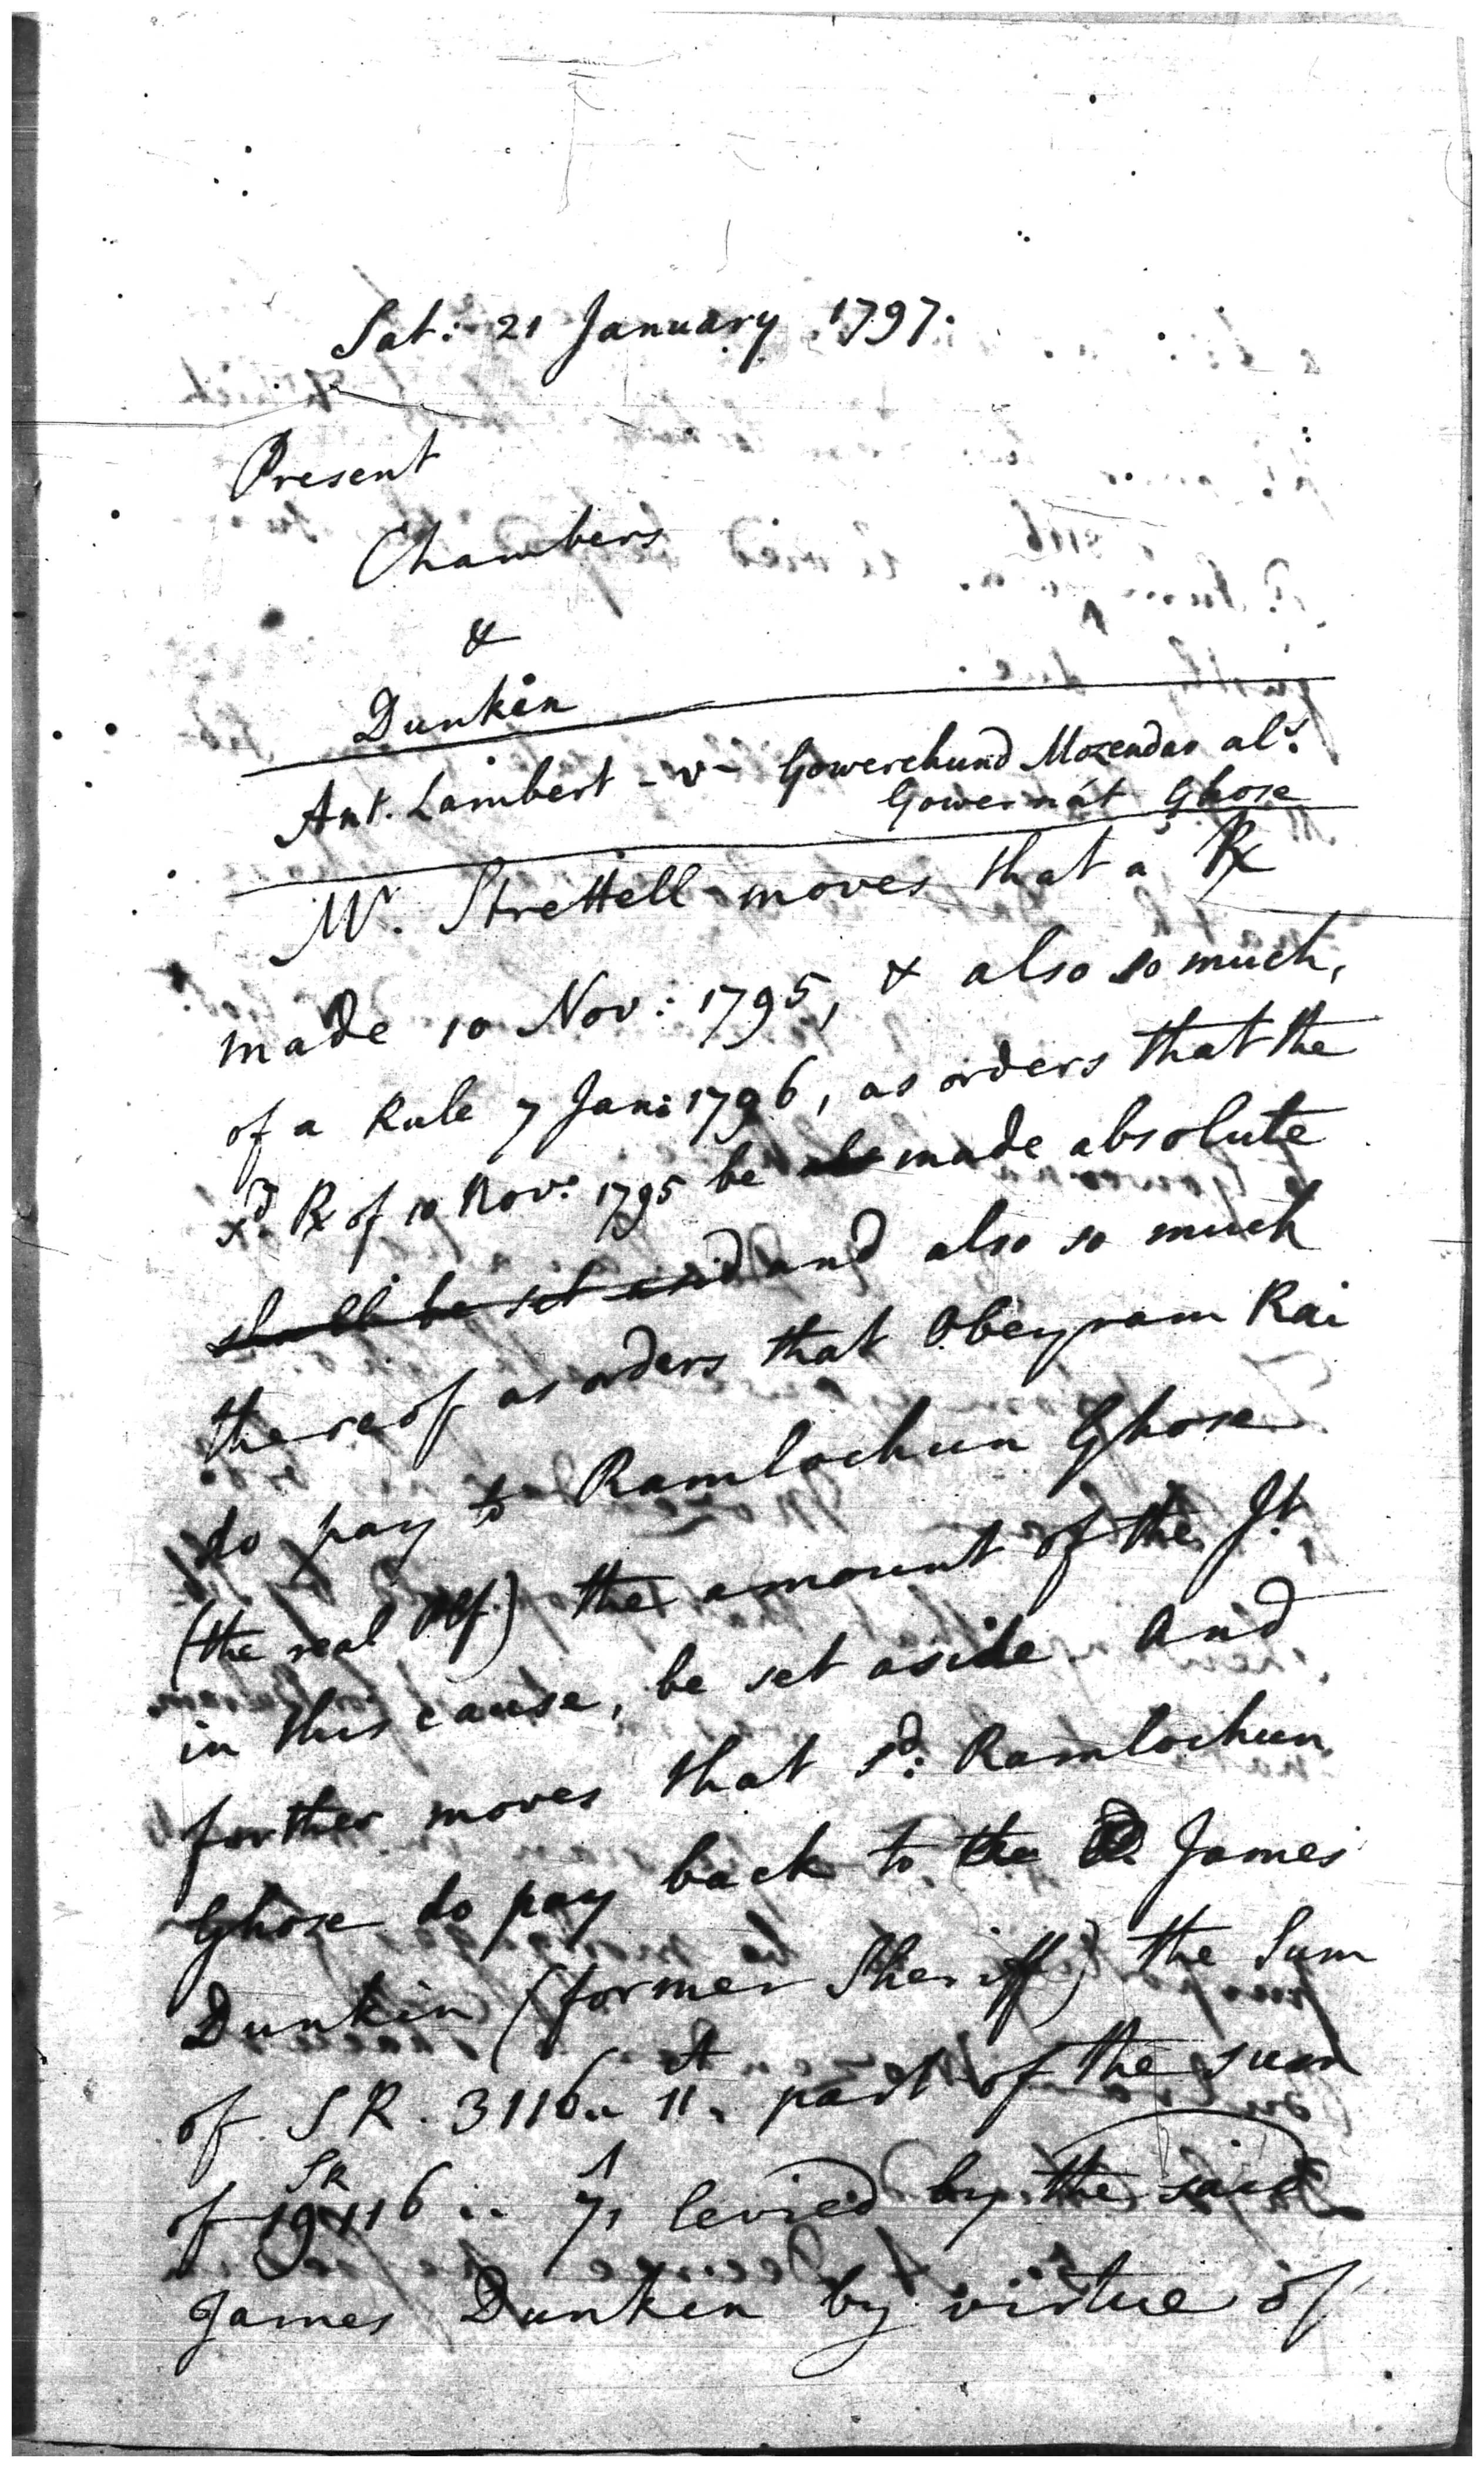 Sat: 21 January 1797.
Present
Chambers
&
Dunkin
Ant. Lambert - v - Gowerchund Mozendar als.
Gowernát Ghose
Mr. Strettell moves that a Rx
made 10 Nov: 1795, & also so much,
of a Rule 7 Jan: 1796, as orders that the
sd. Rx of 10 Nov: 1795 be made absolute
shall be set asid and also so much
thereof as orders that Obeyram Rai
do pay to Ramlochun Ghose
(the real Plf.) the amount of the Jt.
in this cause, be set aside And
further moves that sd: Ramlochun
Ghose do pay back to the James
Dunkin (former Sheriff) the Sum
of S R. 3116.. 11 A. part of the sum
of SR 19116 .. 7 A levied by the said
James Dunkin by virtue of